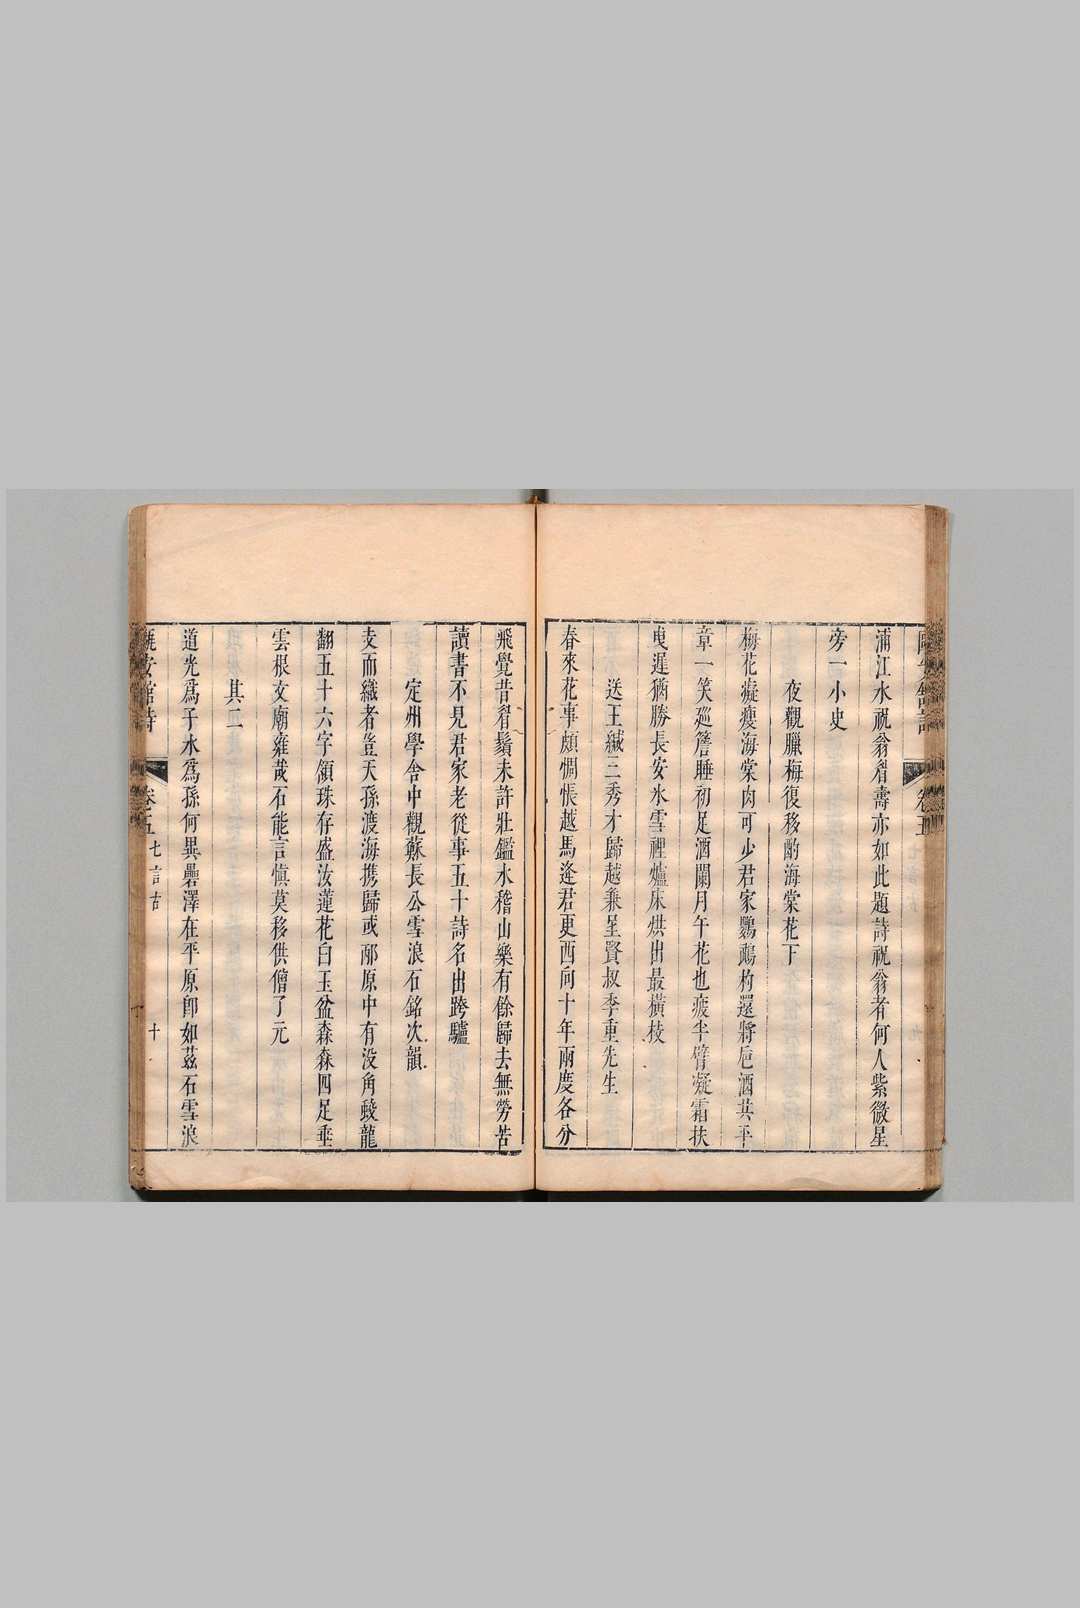 浦江水祝翁眉壽亦如此題詩祝翁者何人紫微星
旁一小史
夜觀臘梅復移酌海棠花下
梅花癡瘦海棠肉可少君家鸚鵡杓還將卮酒萁平
章一笑廵簷睡初足酒闌月午花也疲半臂凝霜扶
曳遲猶勝長安氷雪裡爐床烘出最橫枝
送王緘三秀才歸越兼呈賢叔季重先生
春來花事頗惆悵越馬逢君更西向十年兩慶各分
飛覺昔眉鬚未許壯鑑水稽山藥有餘歸去無勞苦
讀書不見君家老從事五十詩名出跨驢
定州學舍中觀蘇長公雪浪石銘次韻
支而織者豈天孫渡海携歸或邴原中有没角駿龍
翻五十六字頷珠存盛汝蓮花白玉盆森森四足垂
雲根文廟雍哉石能言愼莫移供僧了元
其二
道光爲子水爲孫何異礨澤在平原卽如茲石雪浪
卷五
七言古
十